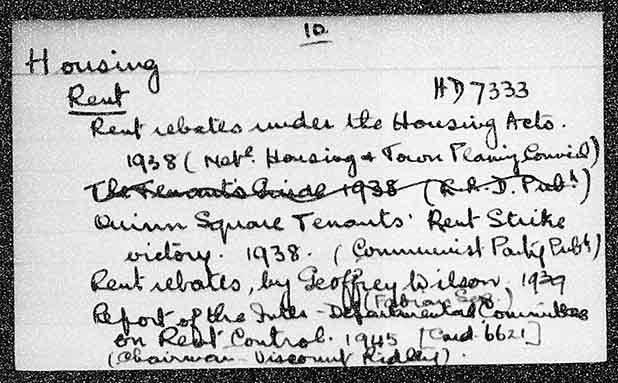 10
Housing
Rent
HD 7333
Rent rebates under the Housing Acts.
1938 (Natl. Housing & Town Planing Council)
The Tenant's Guide 1938 (L.R.D. Publ)
Quinn Square Tenants' Rent Strike
victory. 1938. (Communist Party Publ)
Rent rebates, by Geoffrey Wilson, 1939
(Fabian Soc.)
Report of the Inter-Departmental Committee
on Rent Control. 1945 [Card. 6621]
(Chairman - Viscount Ridley).